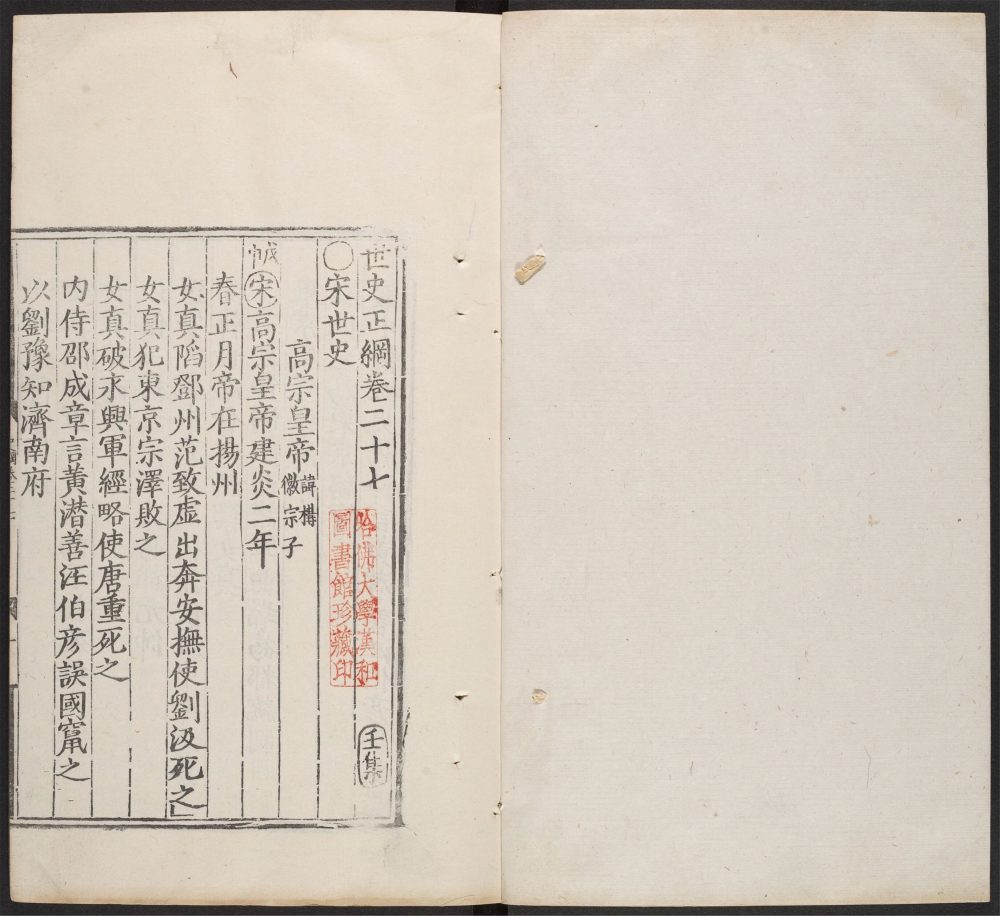 世史正綱卷二十七
壬集
哈佛大學漢和
圖書館珍藏印
○宋世史
高宗皇帝
諱構
徽宗子
宋高宗皇帝建炎二年
春正月帝在揚州
女真陷鄧州范致虛出奔安撫使劉汲死之
女真犯東京宗澤敗之
女真破永興軍經略使唐重死之
内侍邵成章言黃潛善汪伯彦誤國竄之
以劉豫知濟南府